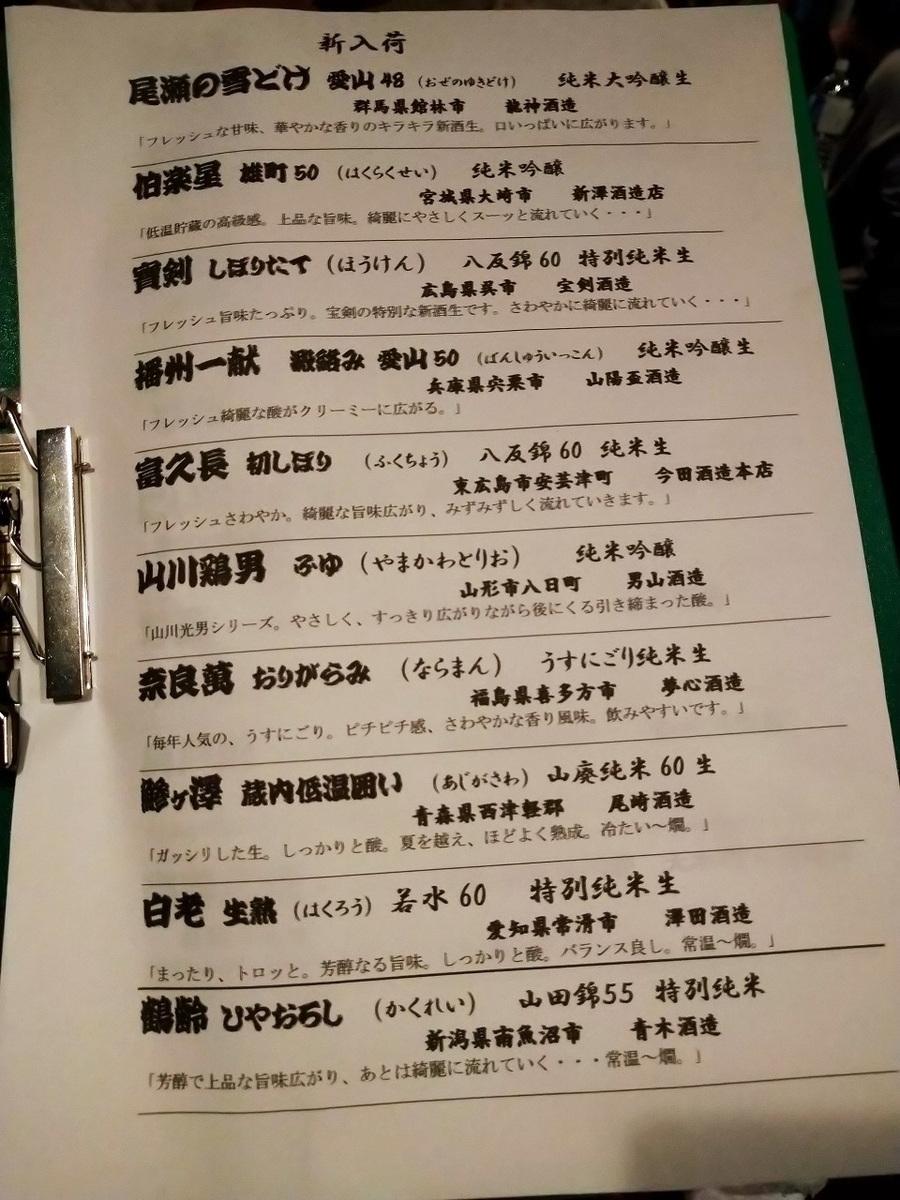 新入荷
尾瀬の雪どけ 愛山48 (おぜのゆきどけ) 純米大吟醸生
群馬県館林市 龍神酒造
「フレッシュな甘味、華やかな香りのキラキラ新酒生。口いっぱいに広がります。」
伯楽星 雄町50 (はくらくせい) 純米吟醸
宮城県大崎市 新澤酒造店
「低温貯蔵の高級感。上品な旨味。綺麗にやさしくスーッと流れていく・・・」
寳剣 しぼりたて (ほうけん) 八反錦60 特別純米生
広島県呉市 宝剣酒造
「フレッシュ旨味たっぷり。宝剣の特別な新酒生です。さわやかに綺麗に流れていく・・・」
播州一献 澱絡み 愛山50 (ばんしゅういっこん) 純米吟醸生
兵庫県宍粟市 山陽盃酒造
「フレッシュ綺麗な酸がクリーミーに広がる。」
富久長 初しぼり (ふくちょう) 八反錦60 純米生
東広島市安芸津町 今田酒造本店
「フレッシュさわやか。綺麗な旨味広がり、みずみずしく流れていきます。」
山川鶏男 ふゆ (やまかわとりお) 純米吟醸
山形市八日町 男山酒造
「山川光男シリーズ。やさしく、すっきり広がりながら後にくる引き締まった酸。」
奈良萬 おりがらみ (ならまん) うすにごり純米生
福島県喜多方市 夢心酒造
「毎年人気の、うすにごり。ピチピチ感、さわやかな香り風味。飲みやすいです。」
鰺ヶ澤 蔵内低温囲い (あじがさわ) 山廃純米60生
青森県西津軽郡 尾崎酒造
「ガッシリした生。しっかりと酸。夏を越え、ほどよく熟成。冷たい～燗。」
白老 生熟 (はくろう) 若水60 特別純米生
愛知県常滑市 澤田酒造
「まったり、トロッと。芳醇なる旨味。しっかりと酸。バランス良し。常温～燗。」
鶴齢 ひやおろし (かくれい) 山田錦55 特別純米
新潟県南魚沼市 青木酒造
「芳醇で上品な旨味広がり、あとは綺麗に流れていく・・・常温～燗。」